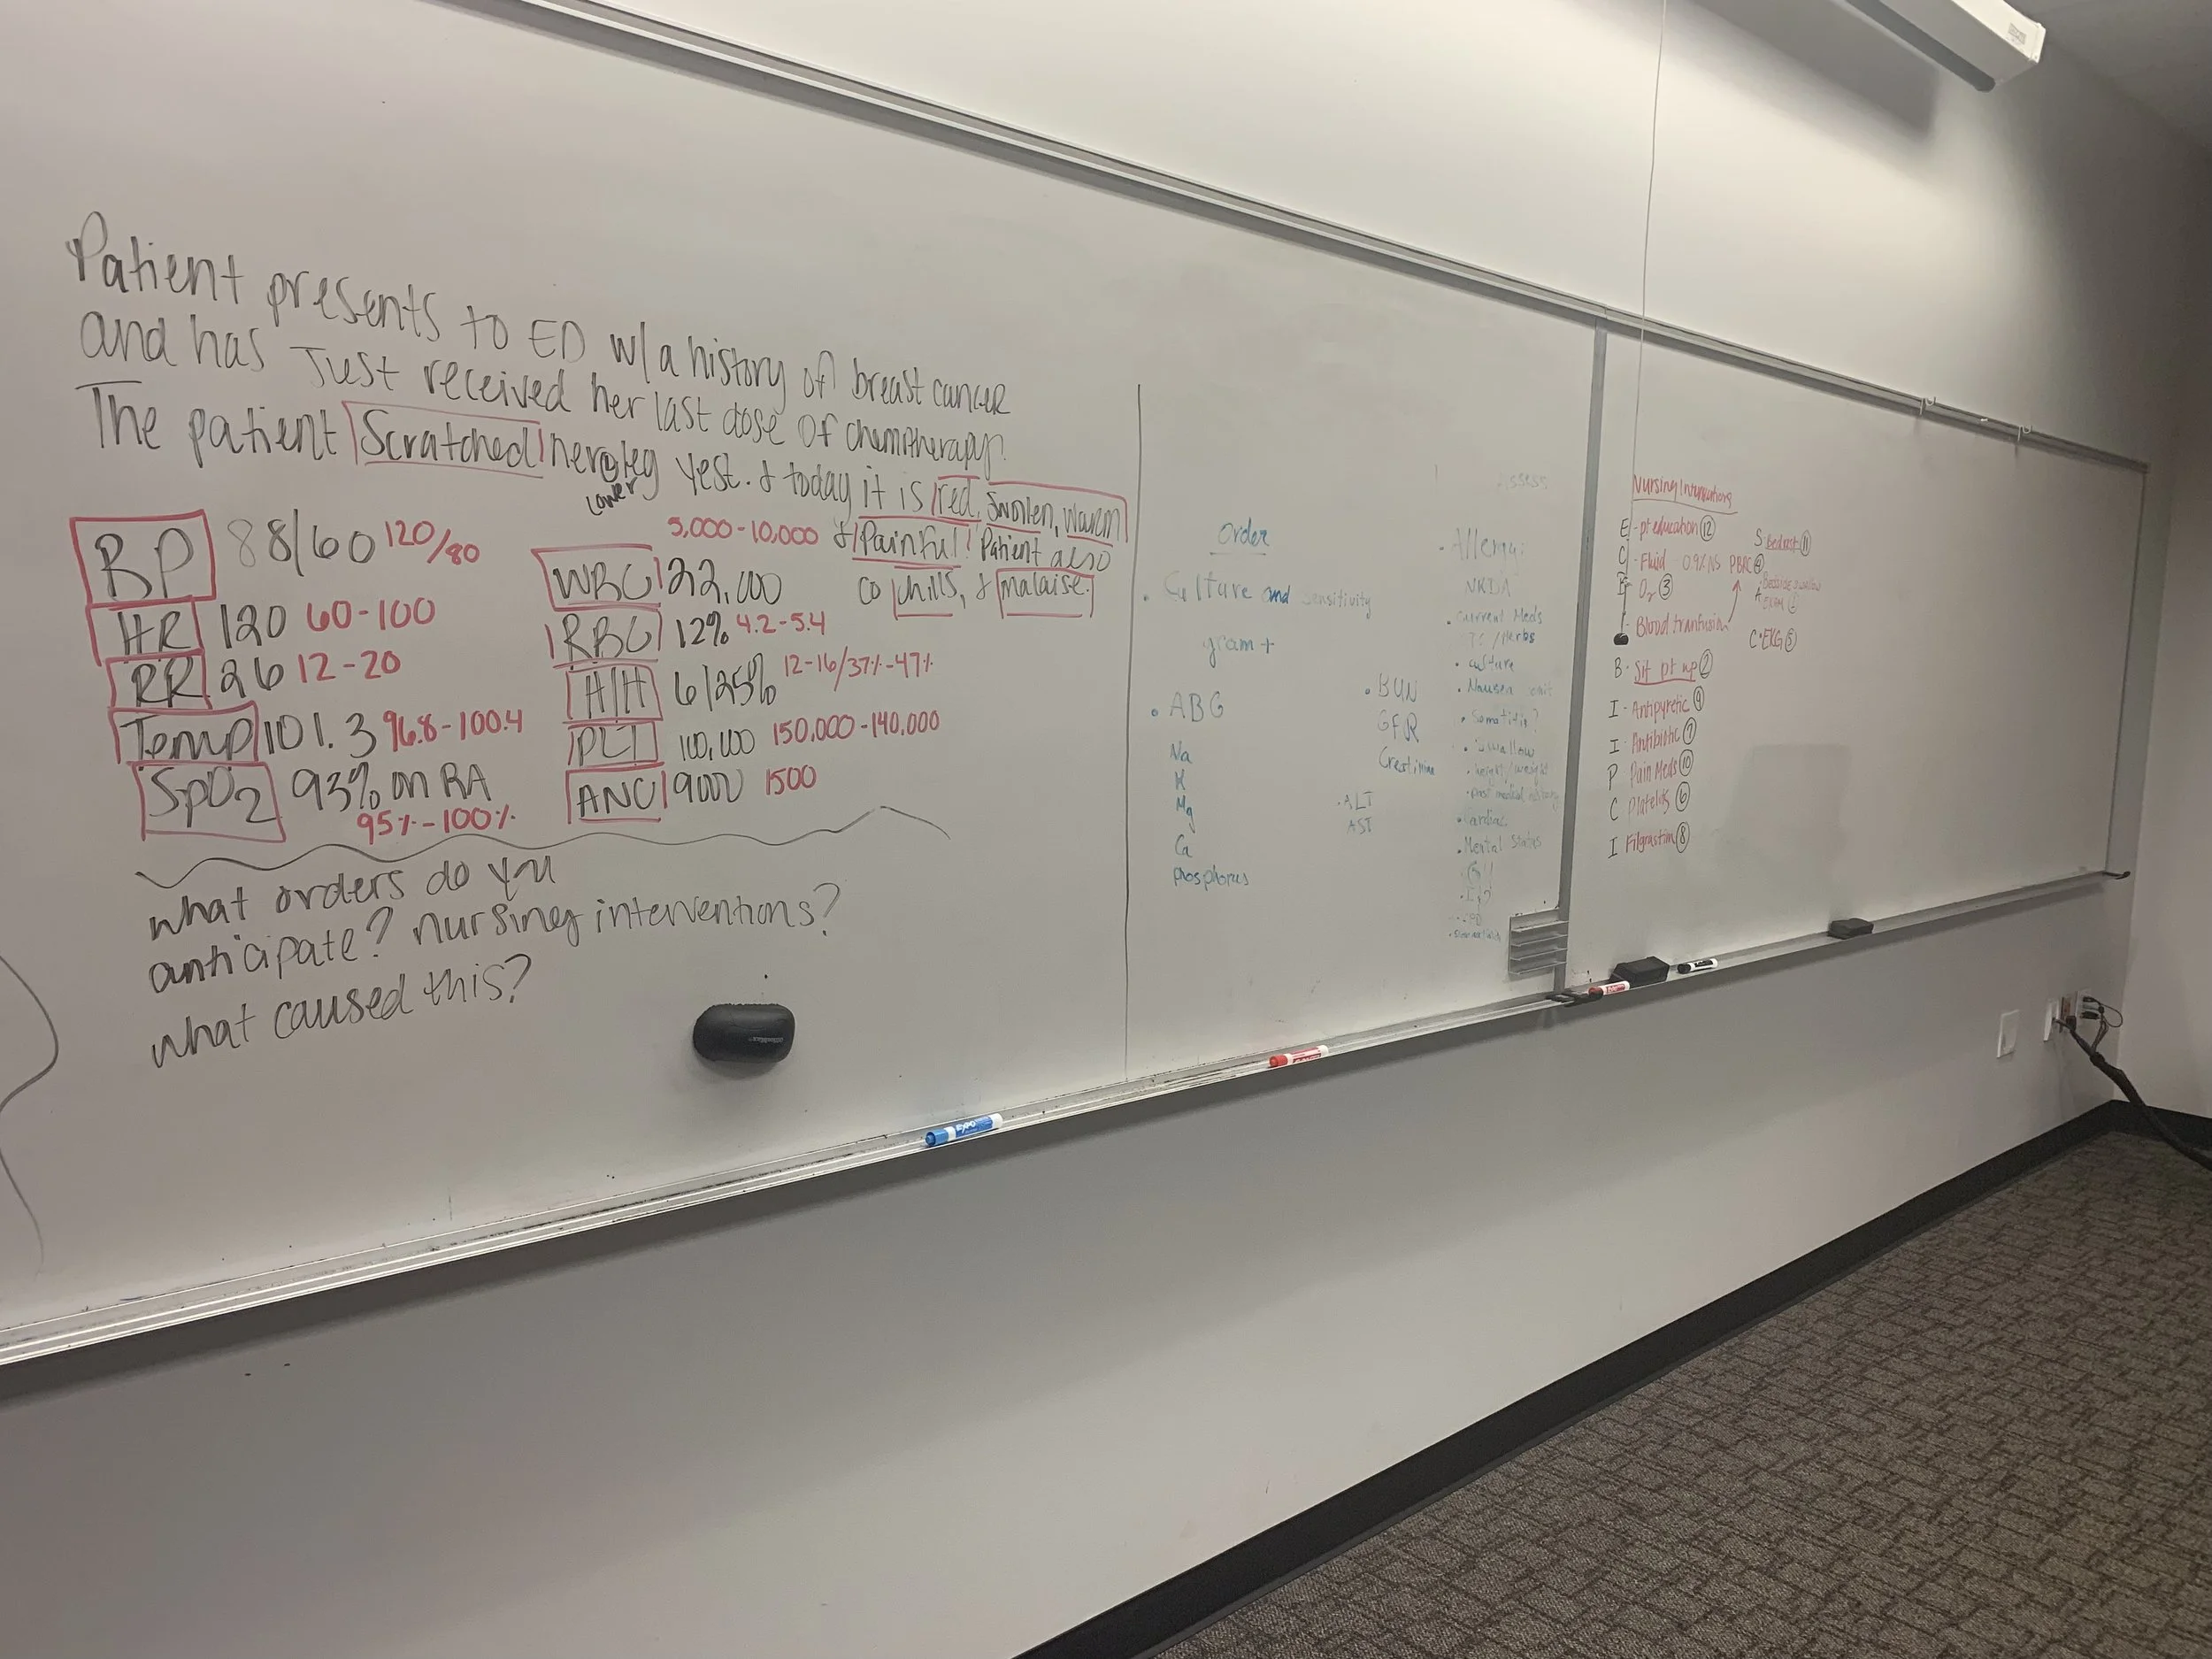 Patient presents to ED w/ a history of breast cancer
and has Just received her last dose of chemotherapy.
The patient Scratched her leg yest. & today it is red, Swollen, warm
lower
& Painful! Patient also
co chills, & malaise.
BP 88/60 120/80
HR 120 60-100
RR 26 12-20
Temp 101.3 96.8-100.4
SpO2 93% on RA
95%-100%
5,000-10,000
WBC 22,000
RBC 12% 4.2-5.4
H/H 6/25% 12-16/37%-47%
PLT 100,000 150,000-140,000
ANC 9000 1500
what orders do you
anticipate? nursing interventions?
what caused this?
order
• Culture and sensitivity
gram +
• ABG
Na
K
Mg
Ca
phosphorus
• BUN
GFR
• ALT
AST
Assess
• Allergy:
NKDA
• Current Meds
/Herbs
• culture
• Nausea
• Swallow
• height/weight
• past medical history
• Cardiac
• Mental Status
Nursing Interventions
E - pt education 12
C - Fluid 0.9% NS PBRC 4
O2 3
Blood tranfusion
B - Sit pt up 2
I - Antipyretic 9
I - Antibiotic 7
P Pain Meds 10
C Platelets 6
I Filgrastim 8
S bedrest 11
A • Bedside swallow
EXAM
C • EKG 5
EXPO